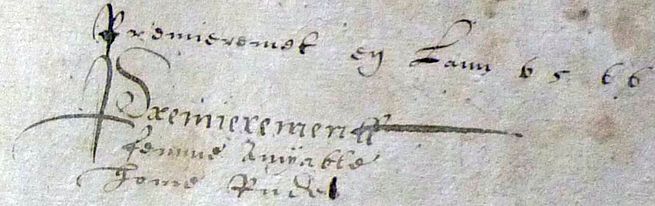 Premieremet en Lann 6 5 6 6
Premierement
femme Amyable
home Rudel